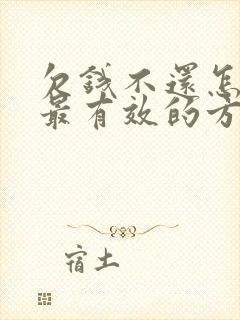 欠錢不還怎
最有效的方
宿土